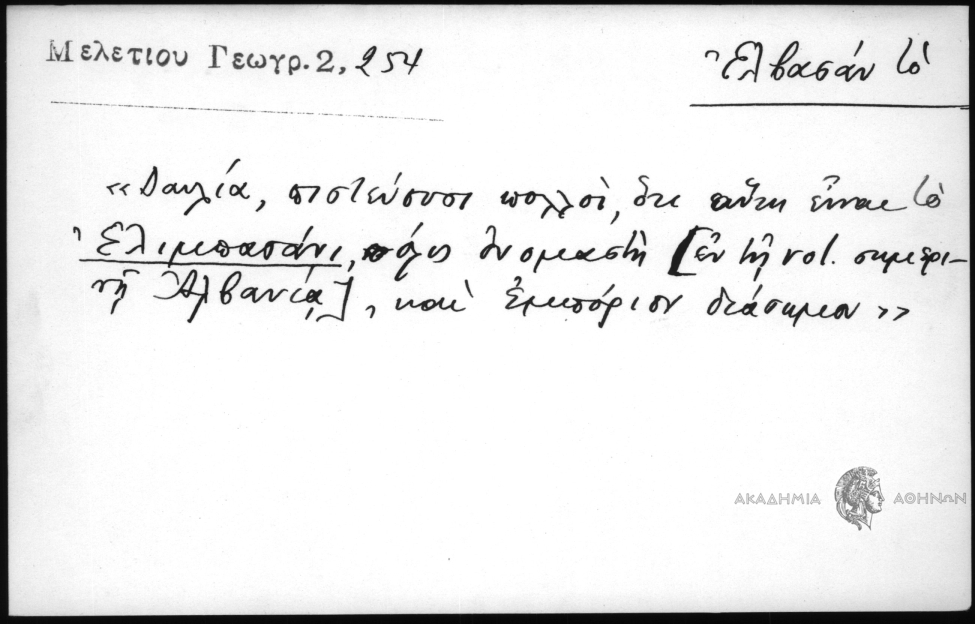 Μελετίου Γεωγρ. 2, 254
Ἐλβασάν τὸ
«Δαυλία, πιστεύουσι πολλοὶ, ὅτι αὕτη εἶναι τὸ
Ἐλιμπασάνι, πόλις ὀνομαστὴ [ἐν τῇ νοτ. σημερι-
νῇ Ἀλβανίᾳ], καὶ ἐμπόριον διάσημον»
ΑΚΑΔΗΜΙΑ ΑΘΗΝΩΝ